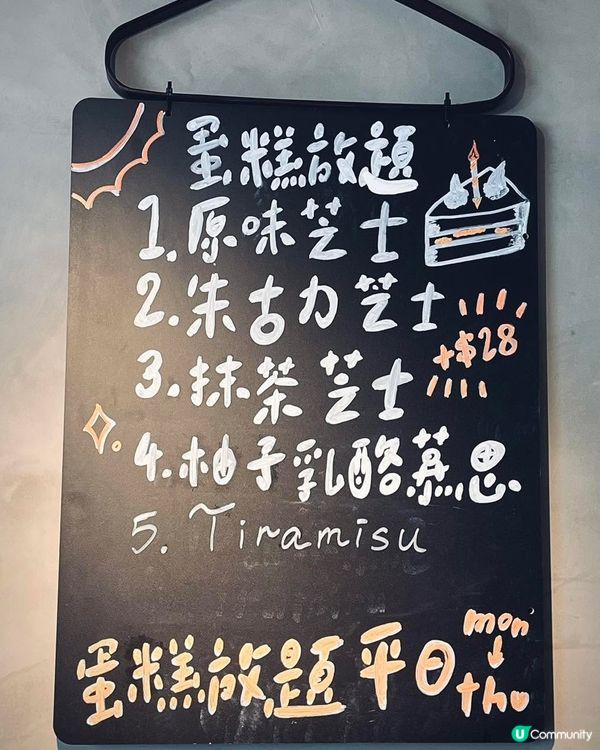 蛋糕放題
1. 原味芝士
2. 朱古力芝士
+$28
3. 抹茶芝士
4. 柚子乳酪慕思
5. Tiramisu
蛋糕放題平日
mon
↓
thu
U Community